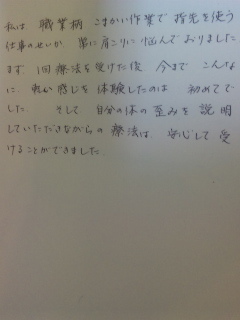 私は 職業柄 こまかい作業で 指先を使う
仕事のせいか 常に肩こりに悩んでおりました
まず 1回療法を受けた後、今まで こんな
に 軽い感じを 体験したのは 初めてで
した. そして 自分の体の歪みを 説明
していただきながらの 療法は、安心して 受
けることができました.